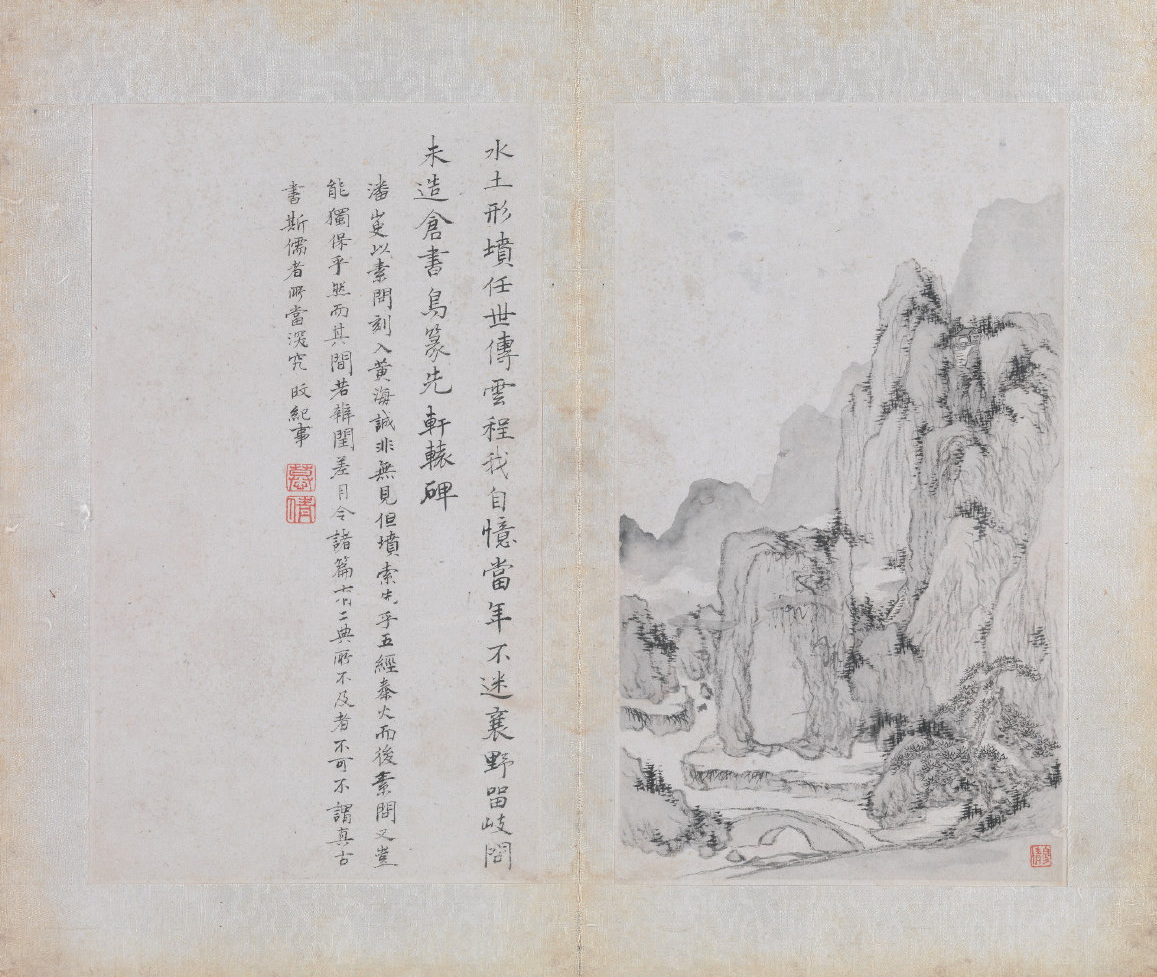 水土形墳任世傳雲程我自憶當年不迷襄野留岐問
未造倉書鳥篆先 軒轅碑
潘㕙以素問刻入黃海誠非無見但墳索先乎五經秦火而後素問又豈
能獨保乎然而其間若辨閏差月令諸篇有二典所不及者不可不謂真古
書斯儒者所當深究 取紀事